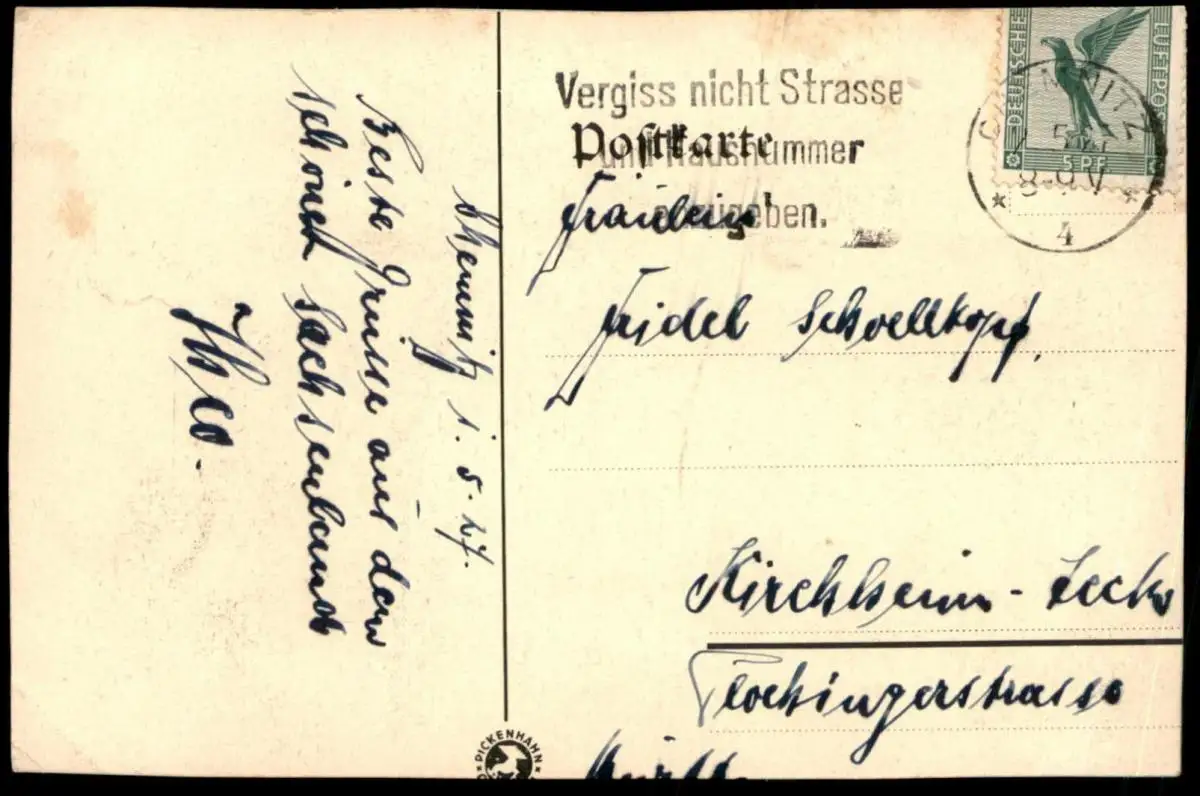 Chemnitz 1.5.27.
Beste Grüsse aus dem
schönen Sachsenlande
Theo.
Vergiss nicht Strasse
und Hausnummer
anzugeben.
Postkarte
Fräulein
Friedel Schoellkopf
Kirchheim-Teck
Plochingerstrasse
Württ.
DEUTSCHE
LUFTPOST
5 PF
CHEMNITZ
8-9 V
4
PICKENHAHN